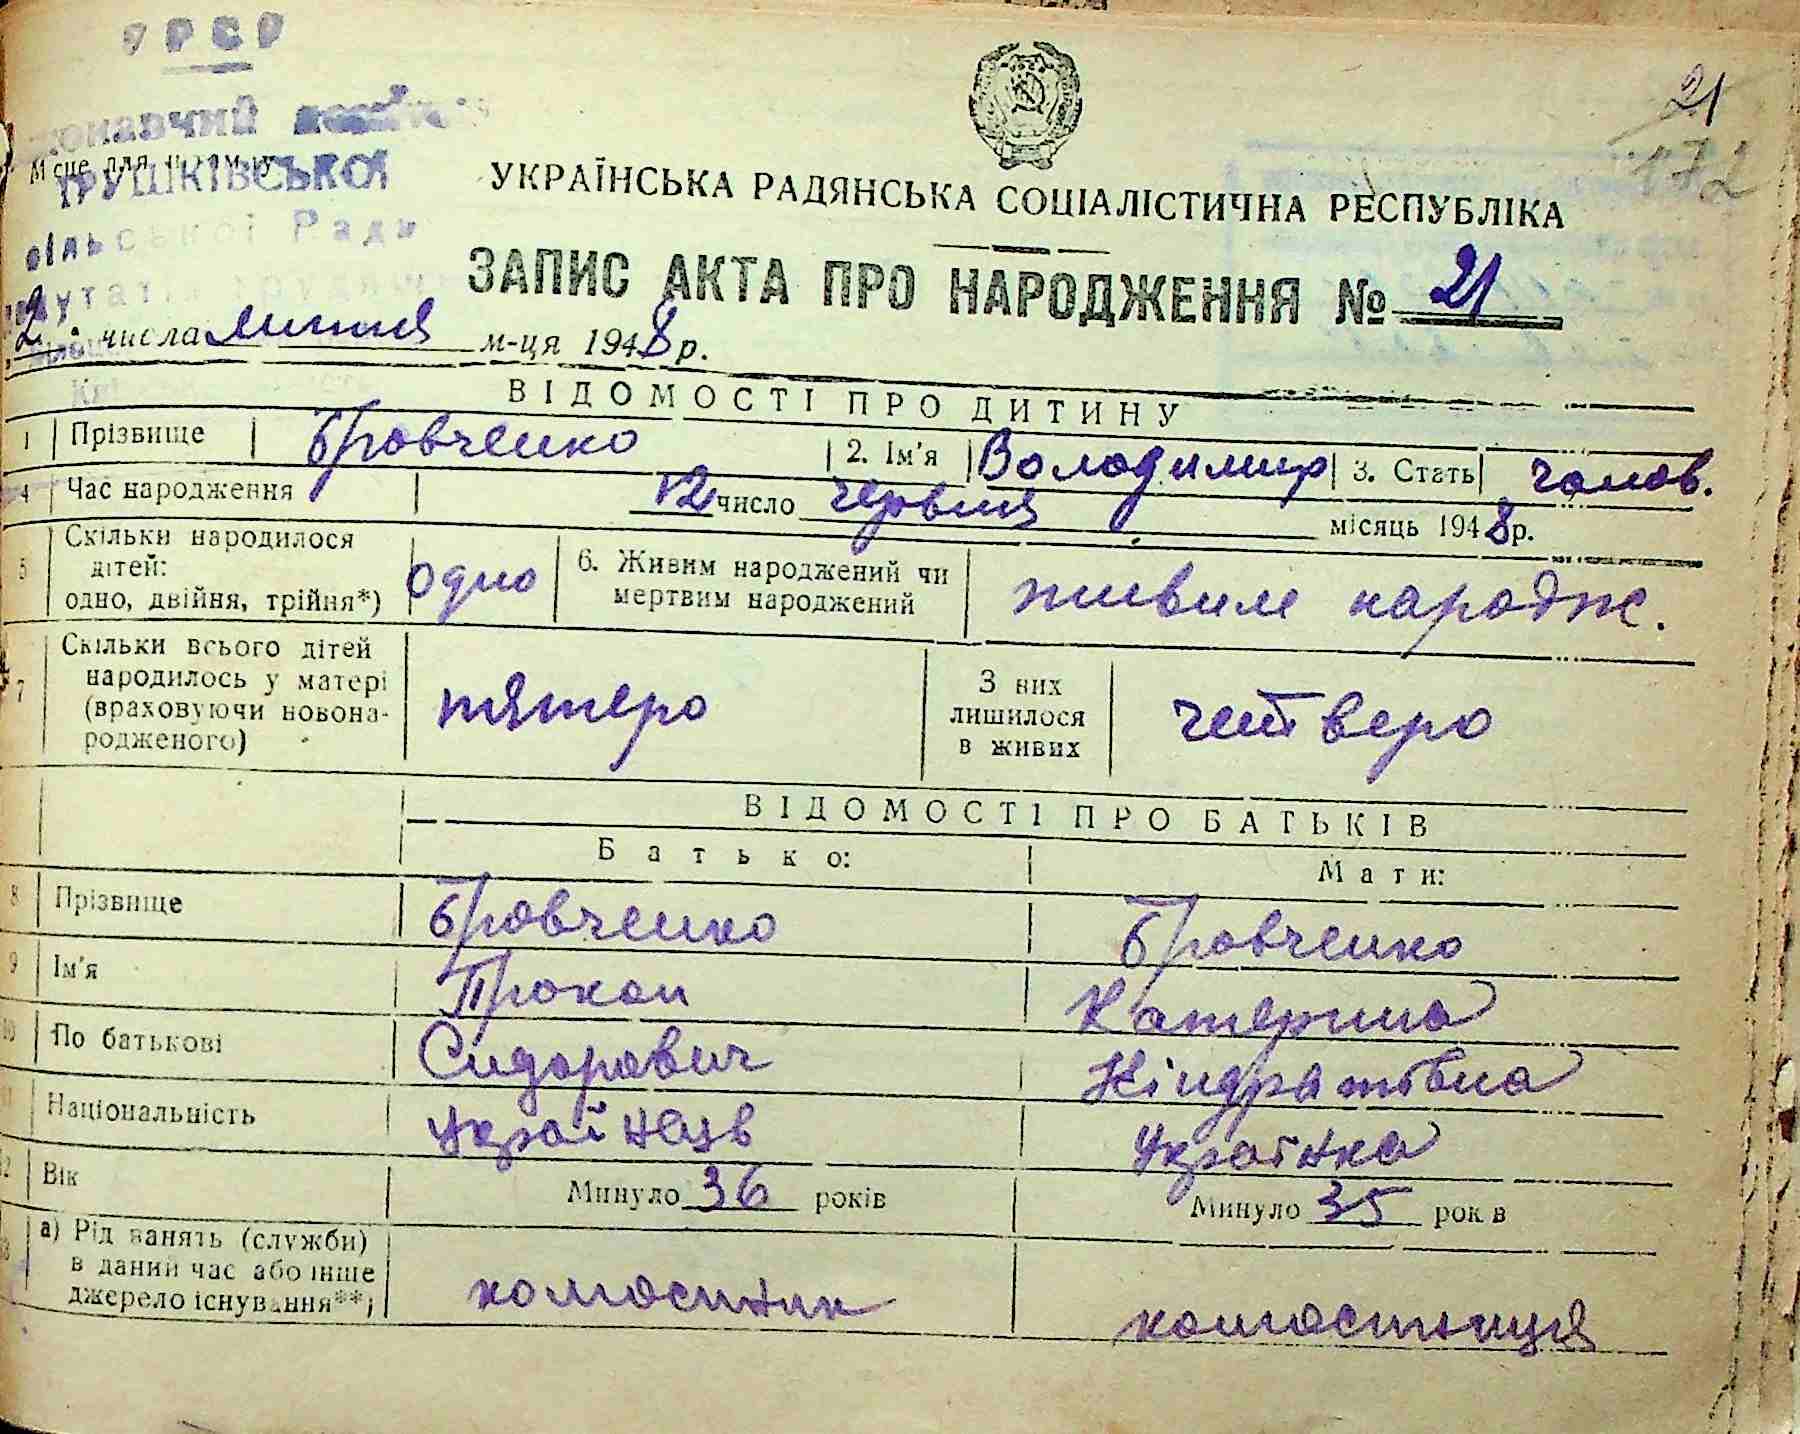 УРСР
21
172
конавчий комітет
Місце для штампу
ГРУШКІВСЬКОЇ
сільської Ради
УКРАЇНСЬКА РАДЯНСЬКА СОЦІАЛІСТИЧНА РЕСПУБЛІКА
ЗАПИС АКТА ПРО НАРОДЖЕННЯ № 21
2 числа липня м-ця 1948 р.
ВІДОМОСТІ ПРО ДИТИНУ
1 Прізвище Бровченко 2. Ім'я Володимир 3. Стать чолов.
4 Час народження 12 число червня місяць 1948 р.
5 Скільки народилося дітей: одно, двійня, трійня*) одно 6. Живим народжений чи мертвим народжений живим народж.
7 Скільки всього дітей народилось у матері (враховуючи новонародженого) пятеро З них лишилося в живих четверо
ВІДОМОСТІ ПРО БАТЬКІВ
Батько: Мати:
8 Прізвище Бровченко Бровченко
9 Ім'я Прокоп Катерина
10 По батькові Сидорович Кіндратівна
11 Національність Українець Українка
12 Вік Минуло 36 років Минуло 35 років
13 а) Рід занять (служби) в даний час або інше джерело існування**) колгоспник колгоспниця